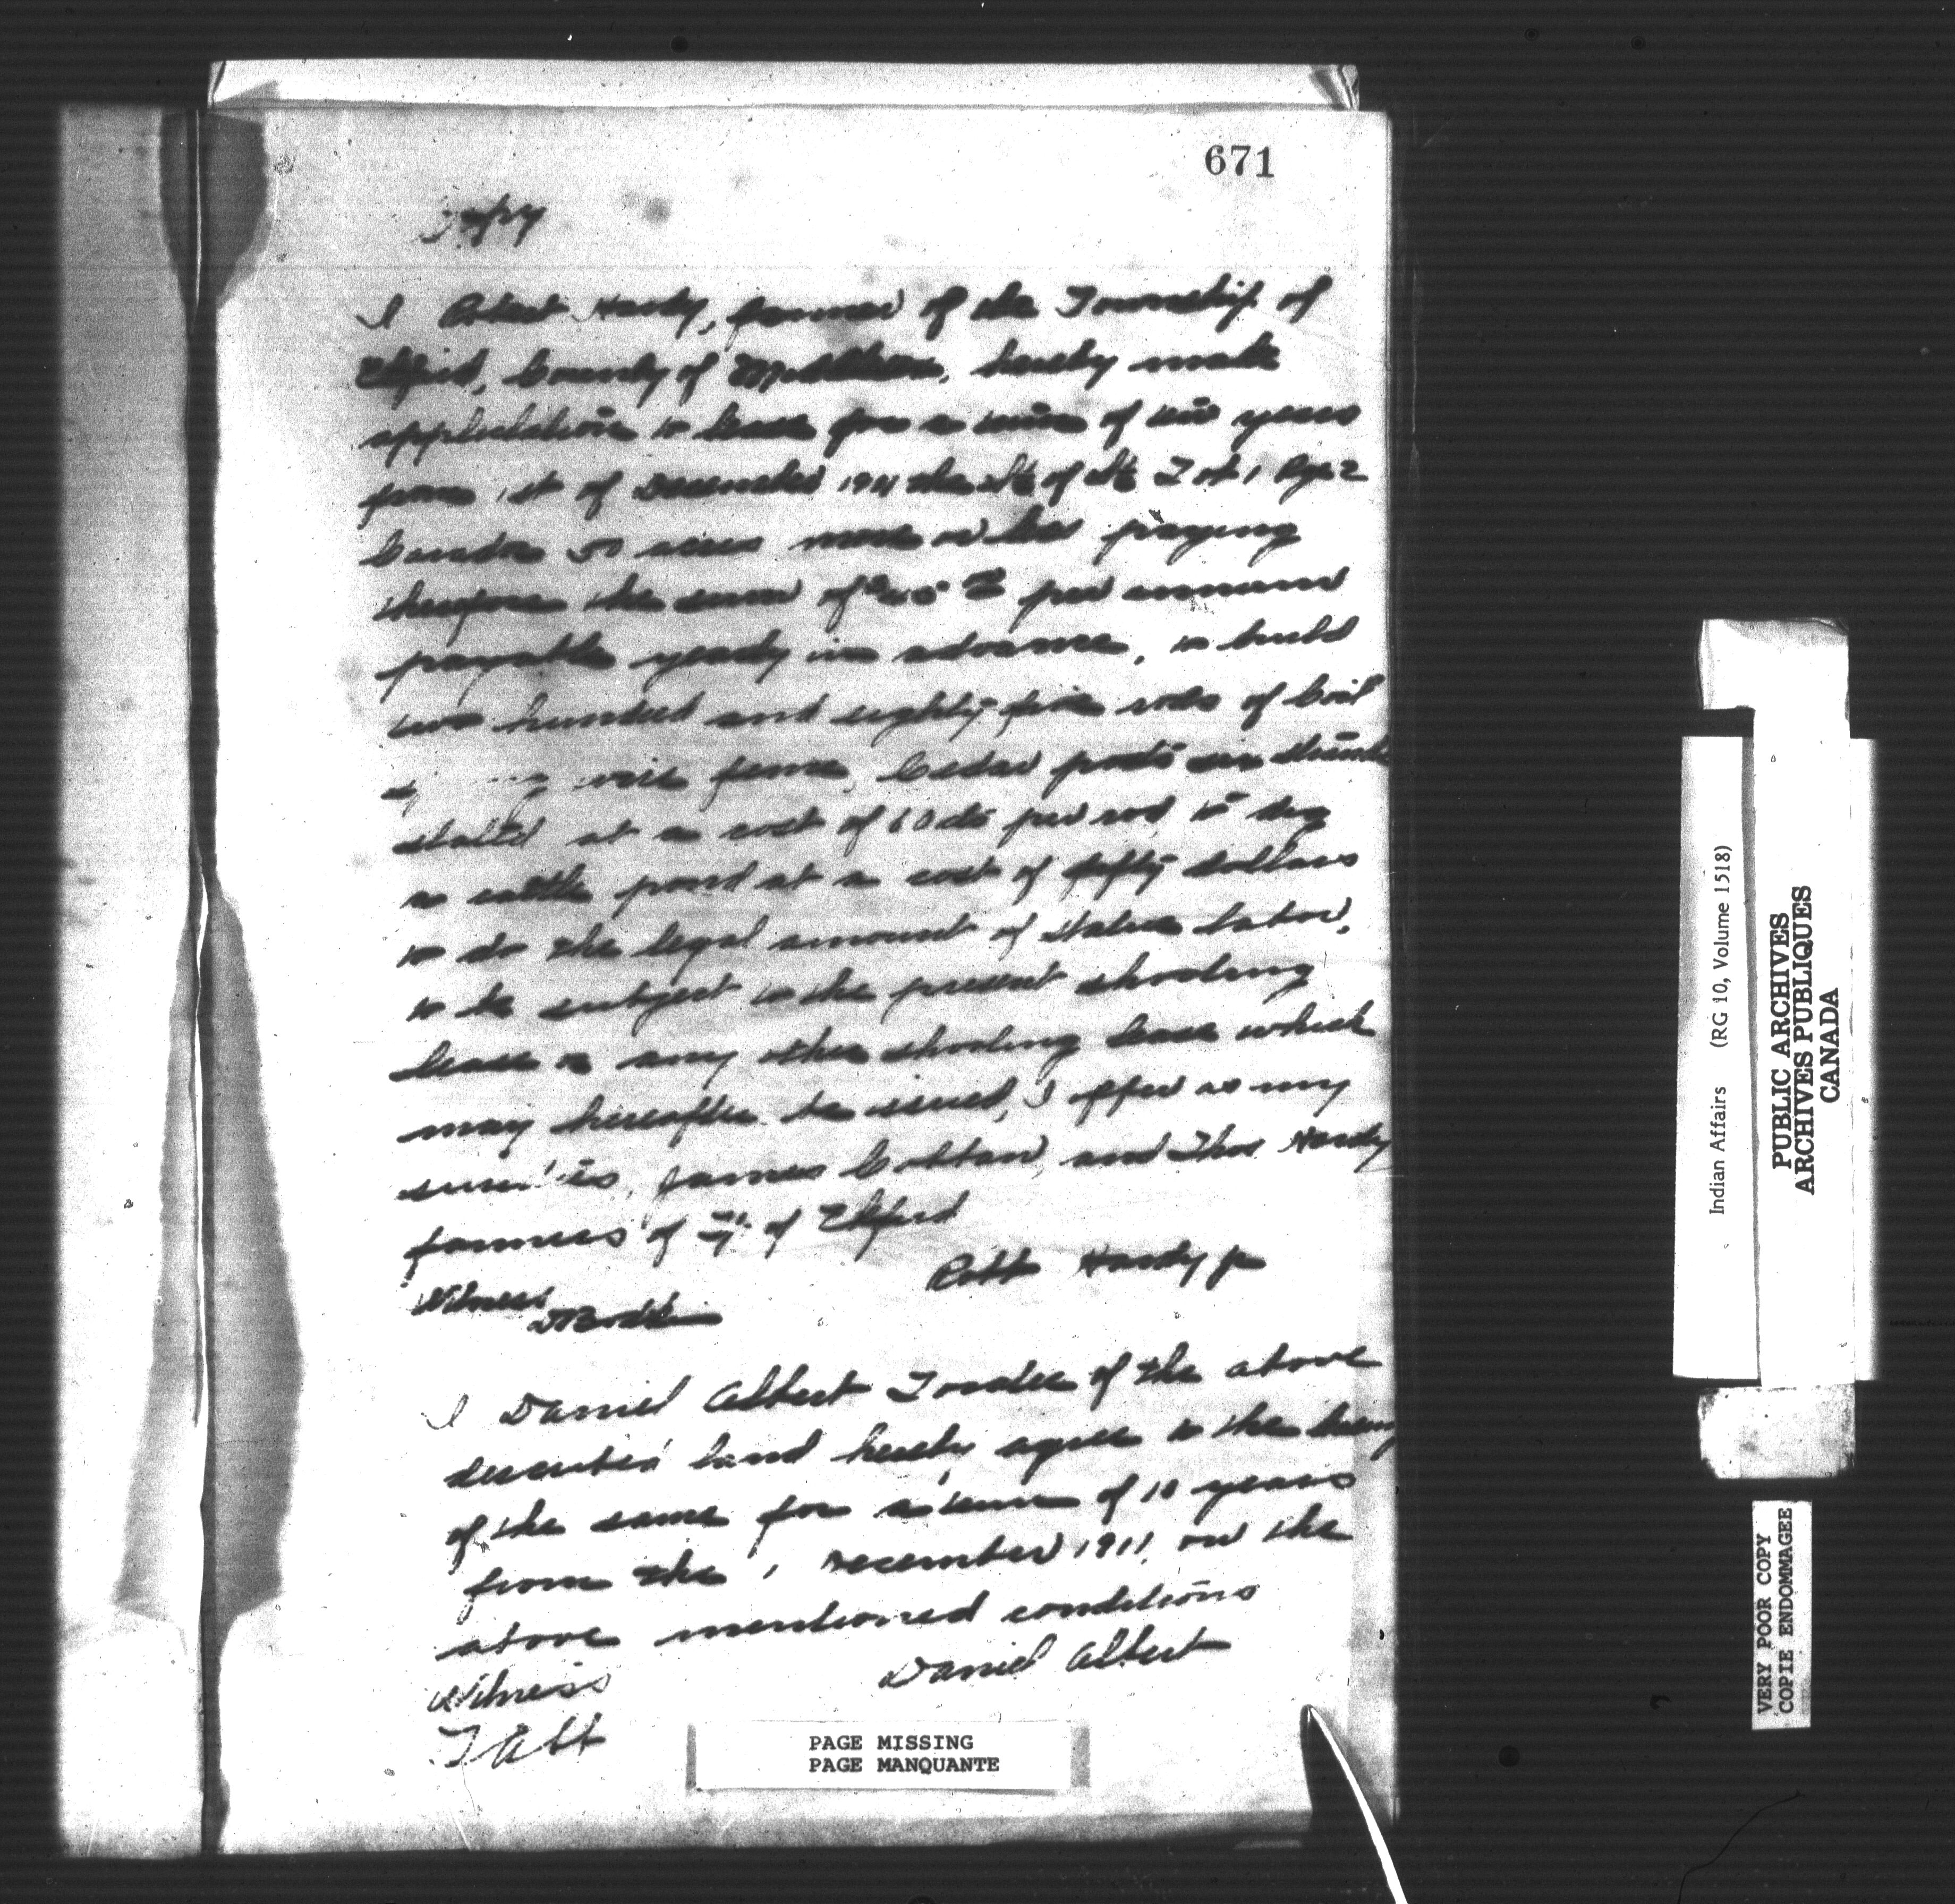 671
Copy
I Robert Hardy, farmer of the Township of
Ekfrid, County of Middlesex, hereby make
application to lease for a term of ten years
from 1st of December 1911 the of Lot 1 Rge 2
Caradoc 50 acres more or less paying
therefore the sum of per annum
payable yearly in advance, to build
two hundred and eighty-five rods of Coil
wire fence, Cedar posts six strands
at a cost of 60 cts per rod to dig
a cattle pond at a cost of fifty dollars
to do the legal amount of statute labor,
to be subject to the present shooting
lease or any other shooting lease which
may hereafter be issued, I offer as my
sureties, James Coltan and Thos Hardy
farmers of Tp. of Ekfrid
Robt Hardy jr
Witness
I Daniel Albert Locatee of the above
described land hereby agree to the leasing
of the same for a term of 10 years
from the 1 December 1911 on the
above mentioned conditions
Witness Daniel Albert
PAGE MISSING
PAGE MANQUANTE
Indian Affairs (RG 10, Volume 1518)
PUBLIC ARCHIVES
ARCHIVES PUBLIQUES
CANADA
VERY POOR COPY
COPIE ENDOMMAGEE